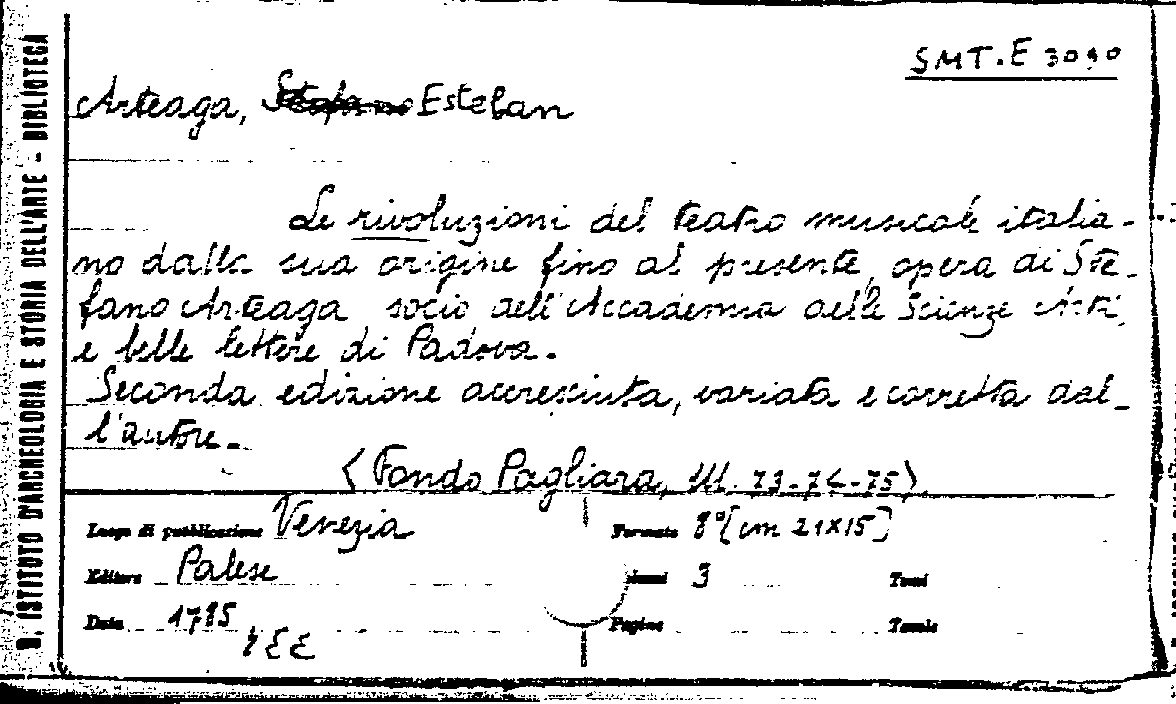 SMT. E 3090
Arteaga, Stefano Esteban
Le rivoluzioni del teatro musicale italia-
no dalla sua origine fino al presente, opera di Ste-
fano Arteaga socio dell'Accademia delle Scienze Arti,
e belle lettere di Padova.
Seconda edizione accresciuta, variata e corretta dal-
l'autore.
(Fondo Pagliara, III. 73-74-75).
Luogo di pubblicazione Venezia
Formato 8° [cm 21x15]
Editore Palese
Volumi 3
Tomi
Data 1785
Pagine
Tavole
B. ISTITUTO D'ARCHEOLOGIA E STORIA DELL'ARTE - BIBLIOTECA